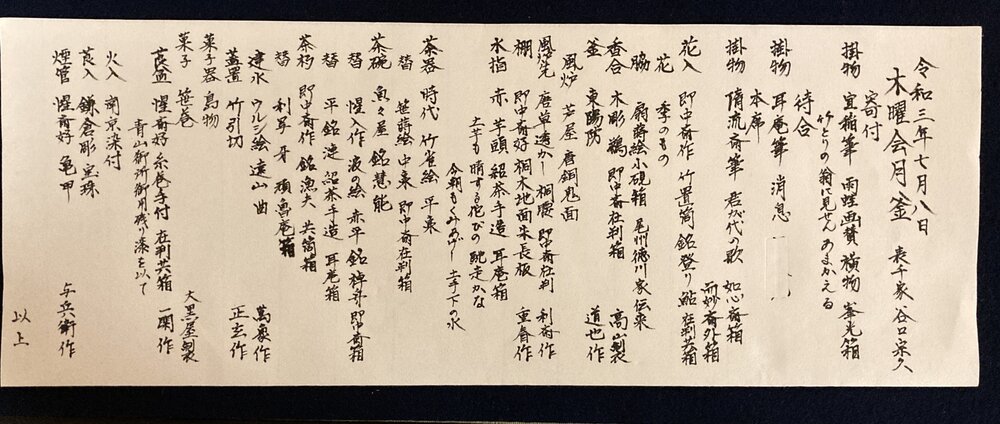 令和三年七月八日
木曜会月釜 表千家 谷口宗久
寄付
掛物 宜稲筆 雨蛙画賛 横物 峯光箱
竹とりの翁に見せんあまかえる
待合
掛物 耳庵筆 消息
本席
掛物 随流斎筆 君が代の歌 如心斎箱
而妙斎外箱
花入 即中斎作 竹置筒 銘 登り鮎 在判共箱
花 季のもの
脇 扇蒔絵小硯箱 尾州徳川家伝来
香合 木彫 鵜 即中斎在判箱 高山製
釜 東陽坊 道也作
風炉 芦屋 唐銅鬼面
風炉先 唐草透かし 桐腰 即中斎在判 利斎作
棚 即中斎好 桐木地面朱長板 重春作
水指 赤 芋頭 紹茶手造 耳庵箱
土芋も晴する佗びの馳走かな
今朝もくみあげし 土手下の水
茶器 時代 竹雀絵 平棗
替 笹蒔絵中棗 即中斎在判箱
茶碗 魚々屋 銘 慧能
替 惺入作 波の絵 赤平 銘 神舟 即中斎箱
替 平 銘 漣 紹茶手造 耳庵箱
茶杓 即中斎作 銘 漁夫 共筒箱
替 利昇 牙 頑魯庵箱
建水 ウルシ絵 遠山 曲 萬象作
蓋置 竹引切 正玄作
菓子器 鳥物
菓子 笹巻 大黒屋製
莨盆 惺斎好 糸巻手付 在判共箱 一閑作
青山御所御用残り漆を以て
火入 南京染付
莨入 鎌倉彫 宝珠
煙管 惺斎好 亀甲 与兵衛作
以上